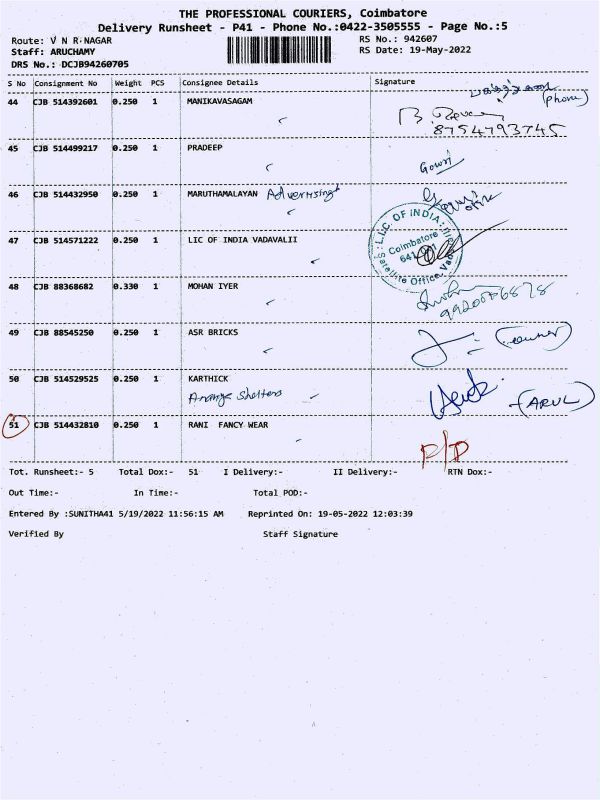 THE PROFESSIONAL COURIERS, Coimbatore
Delivery Runsheet - P41 - Phone No.:0422-3505555 - Page No.:5
Route: V N R NAGAR
RS No.: 942607
Staff: ARUCHAMY
RS Date: 19-May-2022
DRS No.: DCJB94260705
S No Consignment No Weight PCS Consignee Details Signature
44 CJB 514392601 0.250 1 MANIKAVASAGAM
(Phone)
8754793745
45 CJB 514499217 0.250 1 PRADEEP Gowri
46 CJB 514432950 0.250 1 MARUTHAMALAYAN Advertising
47 CJB 514571222 0.250 1 LIC OF INDIA VADAVALII
L.I.C. OF INDIA
Coimbatore
Satellite Office
48 CJB 88368682 0.330 1 MOHAN IYER
49 CJB 88545250 0.250 1 ASR BRICKS (owner)
50 CJB 514529525 0.250 1 KARTHICK
Shelters
(ARUL)
51 CJB 514432810 0.250 1 RANI FANCY WEAR
P/D
Tot. Runsheet:- 5 Total Dox:- 51 I Delivery:- II Delivery:- RTN Dox:-
Out Time:- In Time:- Total POD:-
Entered By :SUNITHA41 5/19/2022 11:56:15 AM Reprinted On: 19-05-2022 12:03:39
Verified By Staff Signature